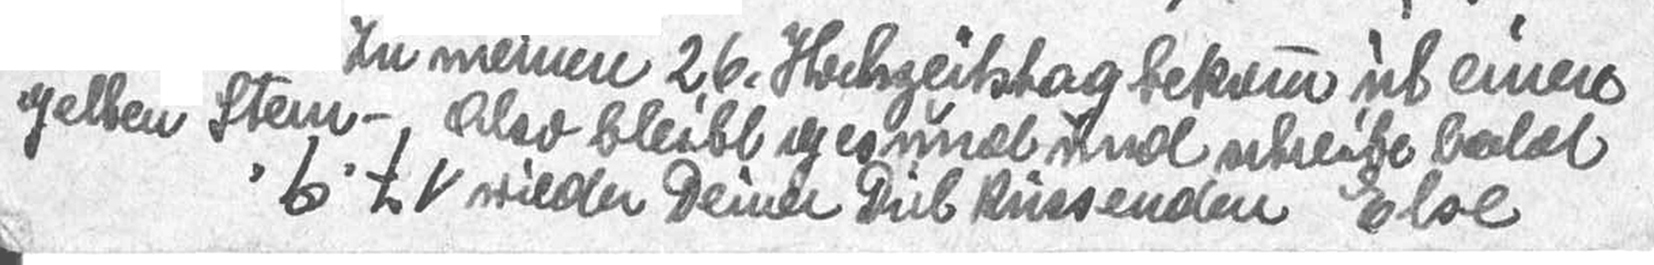 Zu meinen 26. Hochzeitstag bekom̅ ich einen
gelben Stern-, Also bleibt gesund und schreibe bald
wieder Deiner Dich küssenden Else
17. 9.